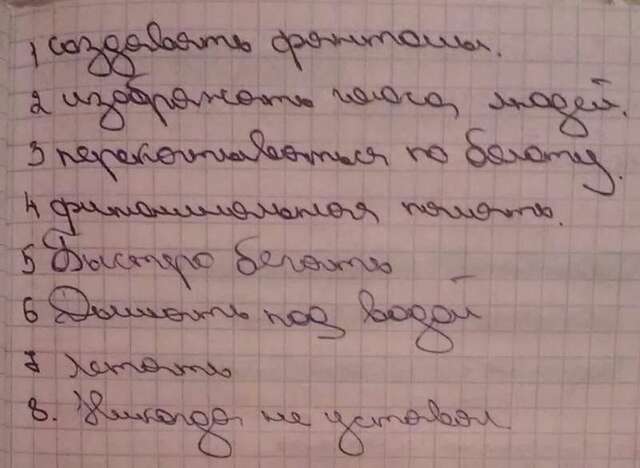 1 создавать фантомы.
2 изображать голоса людей.
3 перекатываться по болоту.
4 феноминальная память.
5 Быстро бегать
6 Дышать под водой
7 летать
8. Никогда не уставал